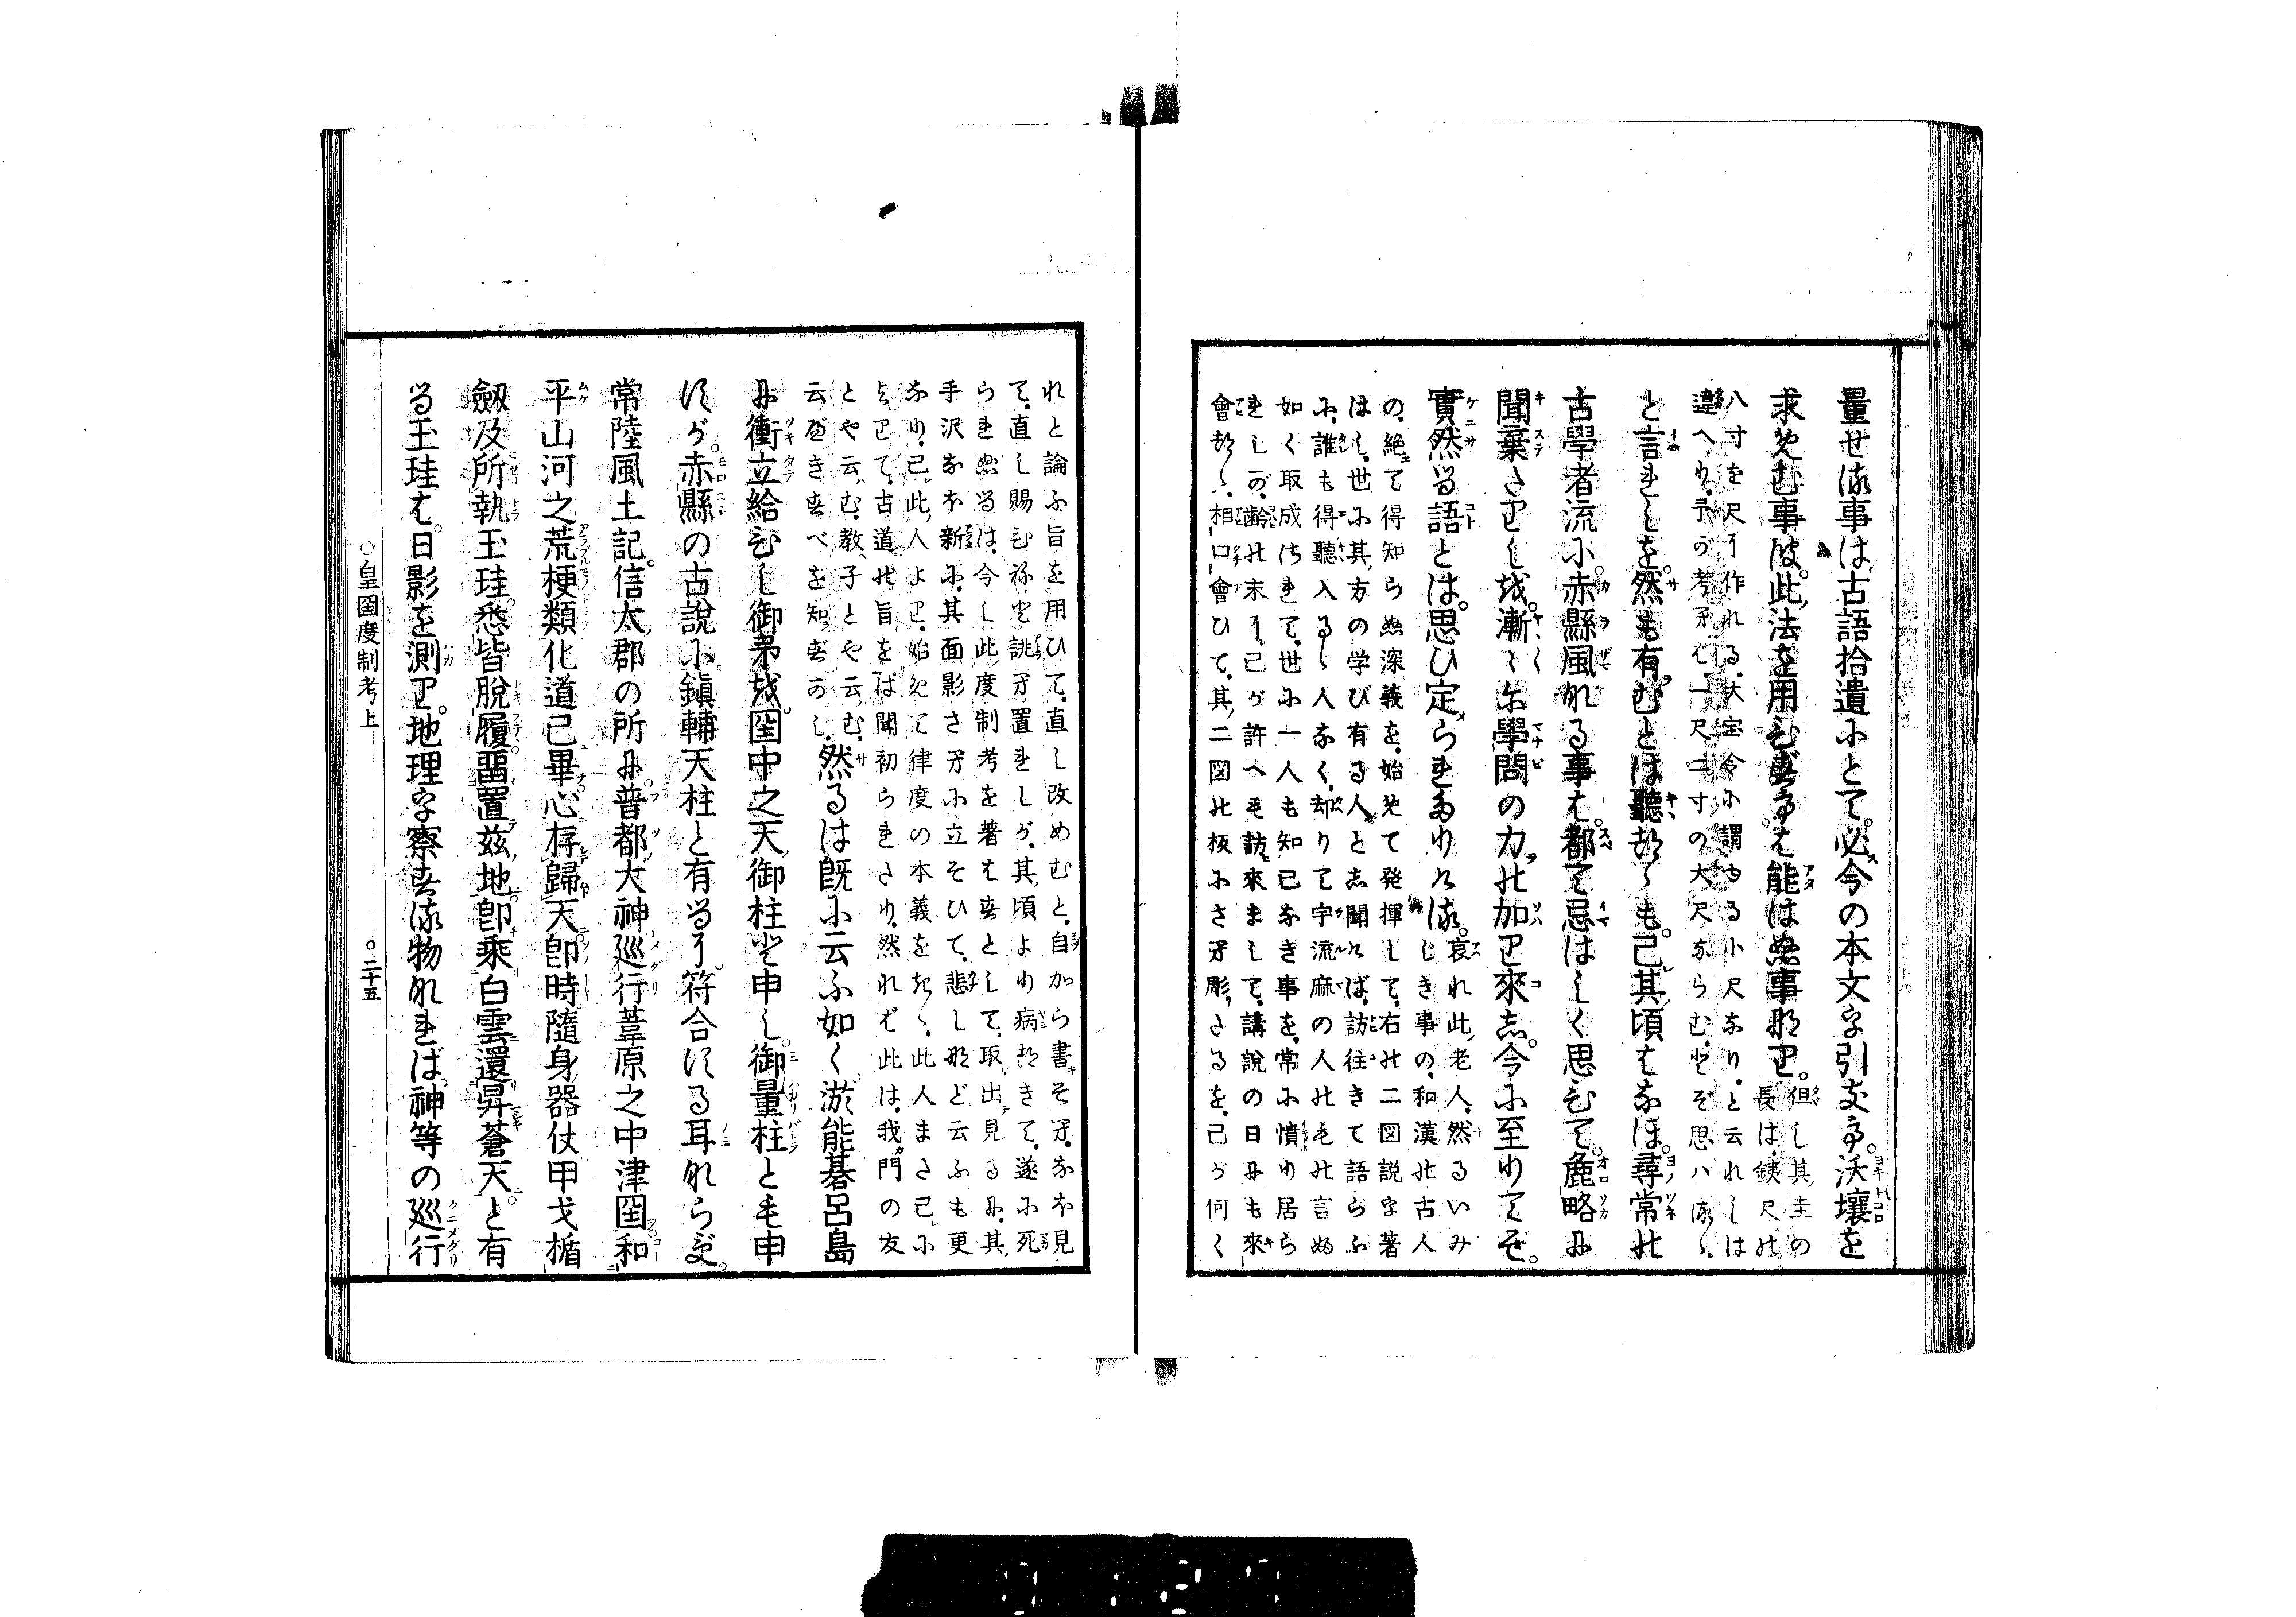 量せる事は古語拾遺にとて必今の本文を引るる沃壤を
求めむ事は此法を用ひずては能はぬ事なり但し其圭の
長は銕尺の
八寸を尺に作れる大宝令に謂ゆる小尺なりと云れしは
違へり予が考にては一尺二寸の大尺ならむとぞ思はるる
と言れしを然も有むとは聽つつも己其頃はなほ尋常の
古學者流に赤縣風なる事は都て忌はしく思ひて麁略に
聞棄たりしを漸く學問の力の加り來し今に至りてぞ
實然る語とは思ひ定られたりける哀れ此老人然るいみ
じき事の和漢の古人
の絶て得知らぬ深義を始めて発揮して右の二図説を著
はし世に其方の学び有る人とし聞けば訪往きて語らふ
に誰も得聽入るる人なく却りて宇流麻の人の毛の言ぬ
如く取成されて世に一人も知己なき事を常に憤り居ら
れしが齡の末に己が許へ訪來まして講説の日にも來
會つつ相口會ひて其二図の板にさへ彫たるを己が何く
れと論ふ旨を用ひて直し改めむと自から書そへなほ見
て直し賜ひねと誂へ置れしが其頃より病つきて遂に死
られぬるは今し此度制考を著はすとして取出見るに其
手沢なほ新に其面影さへに立そひて悲しなど云ふも更
なり己此人より始めて律度の本義をきき此人また己に
よりて古道の旨をば聞初られたり然れば此は我門の友
とや云む教子とや云む
云べきすべを知ずかし然るは既に云ふ如く淤能碁呂島
に衝立給ひし御茅を国中之天御柱と申し御量柱とも申
すが赤縣の古說に鎭輔天柱と有るに符合する耳ならず
常陸風土記信太郡の所に普都大神巡行葦原之中津国和
平山河之荒梗類化道已畢心存歸天卽時隨身器仗甲戈楯
劔及所執玉珪悉皆脫履畱置茲地卽乘白雲還昇蒼天と有
る玉珪は日影を測り地理を察する物なれば神等の巡行
○皇国度制考上
○二十五